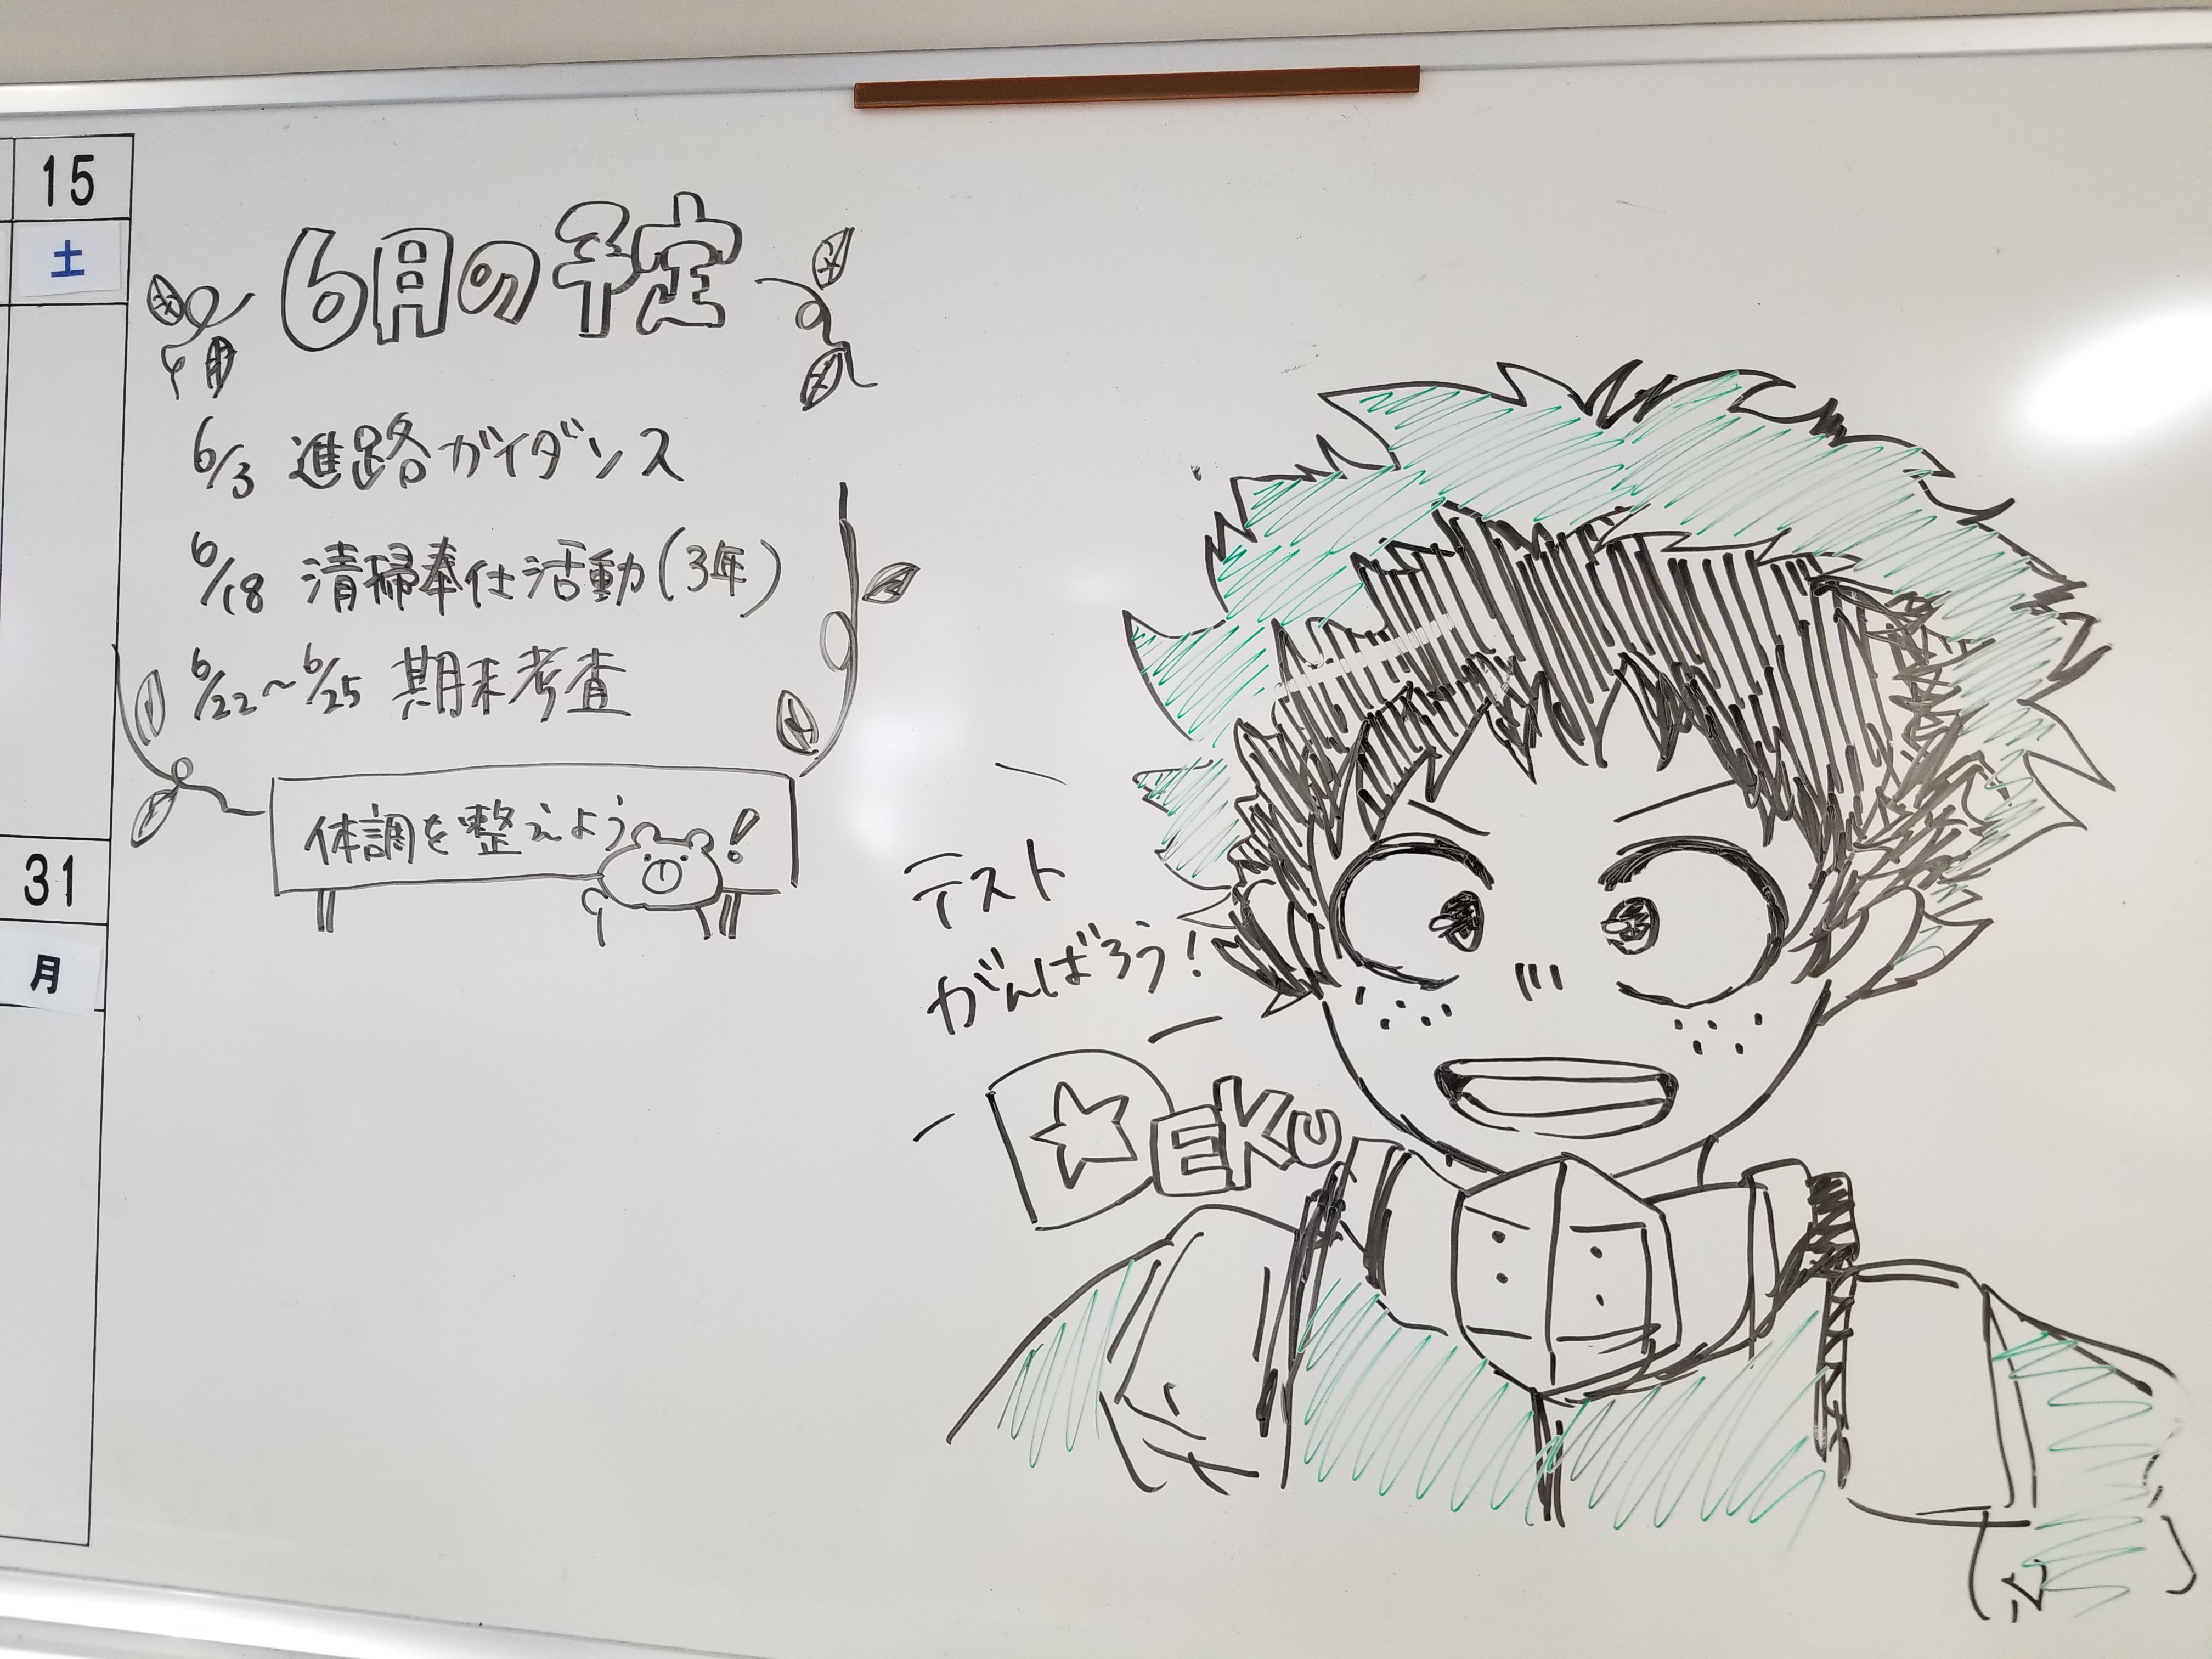 15
土
31
月
6月の予定
6/3 進路ガイダンス
6/18 清掃奉仕活動(3年)
6/22~6/25 期末考査
体調を整えよう!
テスト
がんばろう!
DEKU